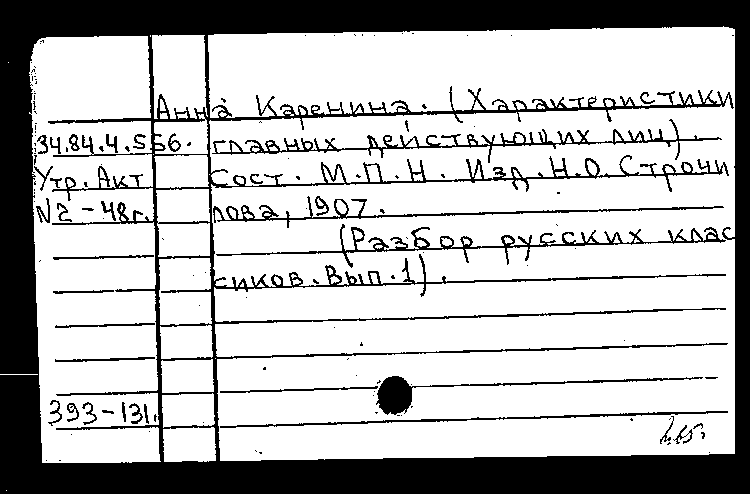 Анна Каренина. (Характеристики
34.84.4.556. главных действующих лиц).
Утр. Акт Сост. М.П.Н. Изд. Н.О. Строчи
№2-48г. лова, 1907.
(Разбор русских клас
сиков. Вып. 1).
393-131.